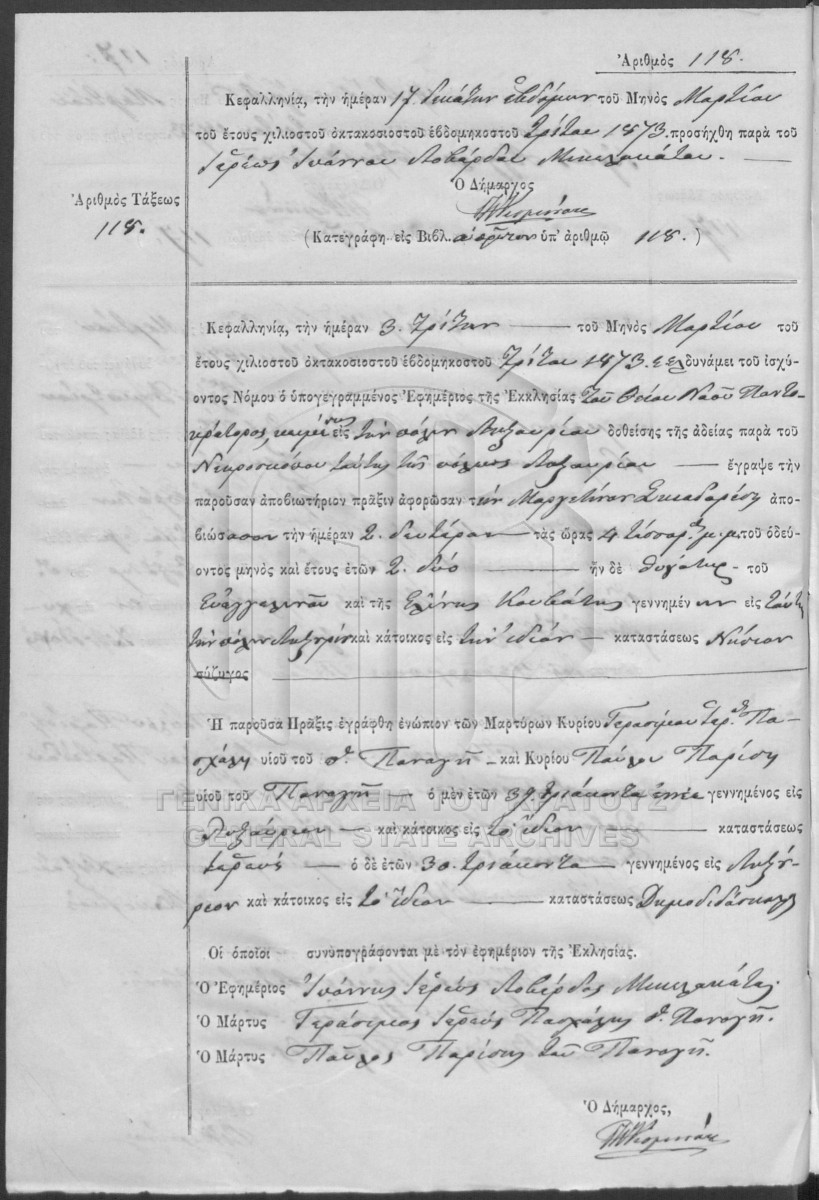 Ἀριθμὸς 118.
Κεφαλληνίᾳ, τὴν ἡμέραν 17. δεκάτην ἑβδόμην τοῦ Μηνὸς Μαρτίου
τοῦ ἔτους χιλιοστοῦ ὀκτακοσιοστοῦ ἑβδομηκοστοῦ τρίτου 1873. προσήχθη παρὰ τοῦ
Ἱερέως Ἰωάννου Λοβέρδου Μικελακάτου.
Ὁ Δήμαρχος
Ἀριθμὸς Τάξεως
118.
(Κατεγράφη εἰς Βιβλ. πρῶτον ὑπ' ἀριθμῷ 118.)
Κεφαλληνίᾳ, τὴν ἡμέραν 3. τρίτην τοῦ Μηνὸς Μαρτίου τοῦ
ἔτους χιλιοστοῦ ὀκτακοσιοστοῦ ἑβδομηκοστοῦ τρίτου 1873. δυνάμει τοῦ ἰσχύ-
οντος Νόμου ὁ ὑπογεγραμμένος Ἐφημέριος τῆς Ἐκκλησίας τοῦ Θείου Ναοῦ Παντο-
κράτορος, κειμένης εἰς τὴν πόλιν Ληξουρίου δοθείσης τῆς ἀδείας παρὰ τοῦ
Νεκροσκόπου ταύτης τῆς πόλεως Ληξουρίου ἔγραψε τὴν
παροῦσαν ἀποβιωτήριον πρᾶξιν ἀφορῶσαν τὴν Μαργετίναν Σκιαδαρέση ἀπο-
βιώσασαν τὴν ἡμέραν 2. δευτέραν τὰς ὥρας 4 τέσσαρ. μ.μ. τοῦ ὁδεύ-
οντος μηνὸς καὶ ἔτους ἐτῶν 2. δύο ἦν δὲ θυγάτηρ τοῦ
Εὐαγγελινοῦ καὶ τῆς Ἑλένης Κουβάτης γεννημένην εἰς ταύτην
τὴν πόλιν Ληξουρίου καὶ κάτοικος εἰς τὴν ἰδίαν καταστάσεως Νήπιον
σύζυγος
Ἡ παροῦσα Πρᾶξις ἐγράφθη ἐνώπιον τῶν Μαρτύρων Κυρίου Γερασίμου Ἱερ. Πα-
σχάλη υἱοῦ τοῦ π. Παναγῆ καὶ Κυρίου Παύλου Παρίση
υἱοῦ τοῦ Παναγῆ ὁ μὲν ἐτῶν 39 τριάκοντα ἐννέα γεννημένος εἰς
Ληξούριον καὶ κάτοικος εἰς τὸ ἴδιον καταστάσεως
Ἱερεὺς ὁ δὲ ἐτῶν 30. τριάκοντα γεννημένος εἰς Ληξού-
ριον καὶ κάτοικος εἰς τὸ ἴδιον καταστάσεως Δημοδιδάσκαλος
Οἱ ὁποῖοι συνυπογράφονται μὲ τὸν ἐφημέριον τῆς Ἐκλησίας.
Ὁ Ἐφημέριος Ἰωάννης Ἱερεὺς Λοβέρδος Μικελακάτος
Ὁ Μάρτυς Γεράσιμος Ἱερεὺς Πασχάλης π. Παναγῆ.
Ὁ Μάρτυς Παῦλος Παρίσης τοῦ Παναγῆ.
Ὁ Δήμαρχος,
ΓΕΝΙΚΑ ΑΡΧΕΙΑ ΤΟΥ ΚΡΑΤΟΥΣ
GENERAL STATE ARCHIVES